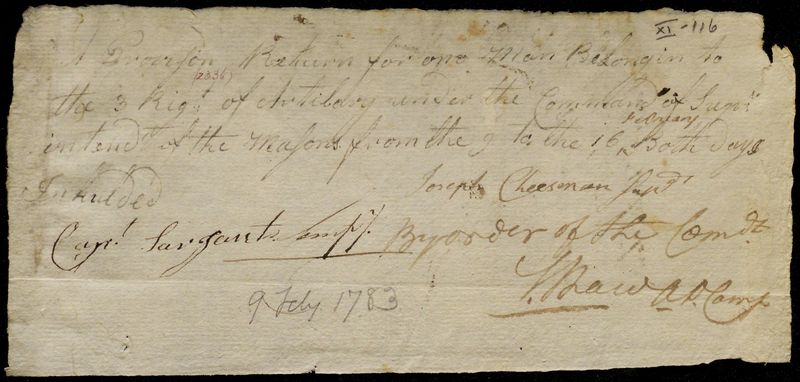 XI-116
A Provison Return for one Man Belongin to
(2336)
the 3 Rigt of Artilary under the Command of Supr
February
intendt of the Masons from the 9 to the 16 Both days
Inkulded
Joseph Cheesman Supdt
Capt Sargants Compy. By order of the Comdt
S. Shaw A.D. Camp
9 Feby 1783